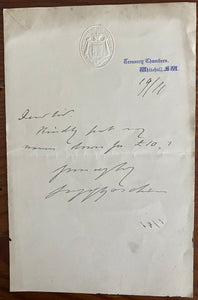 Treasury Chambers,
Whitehall, S.W.
19/11
Dear Sir
Kindly put my
name down for £10.
Yours truly